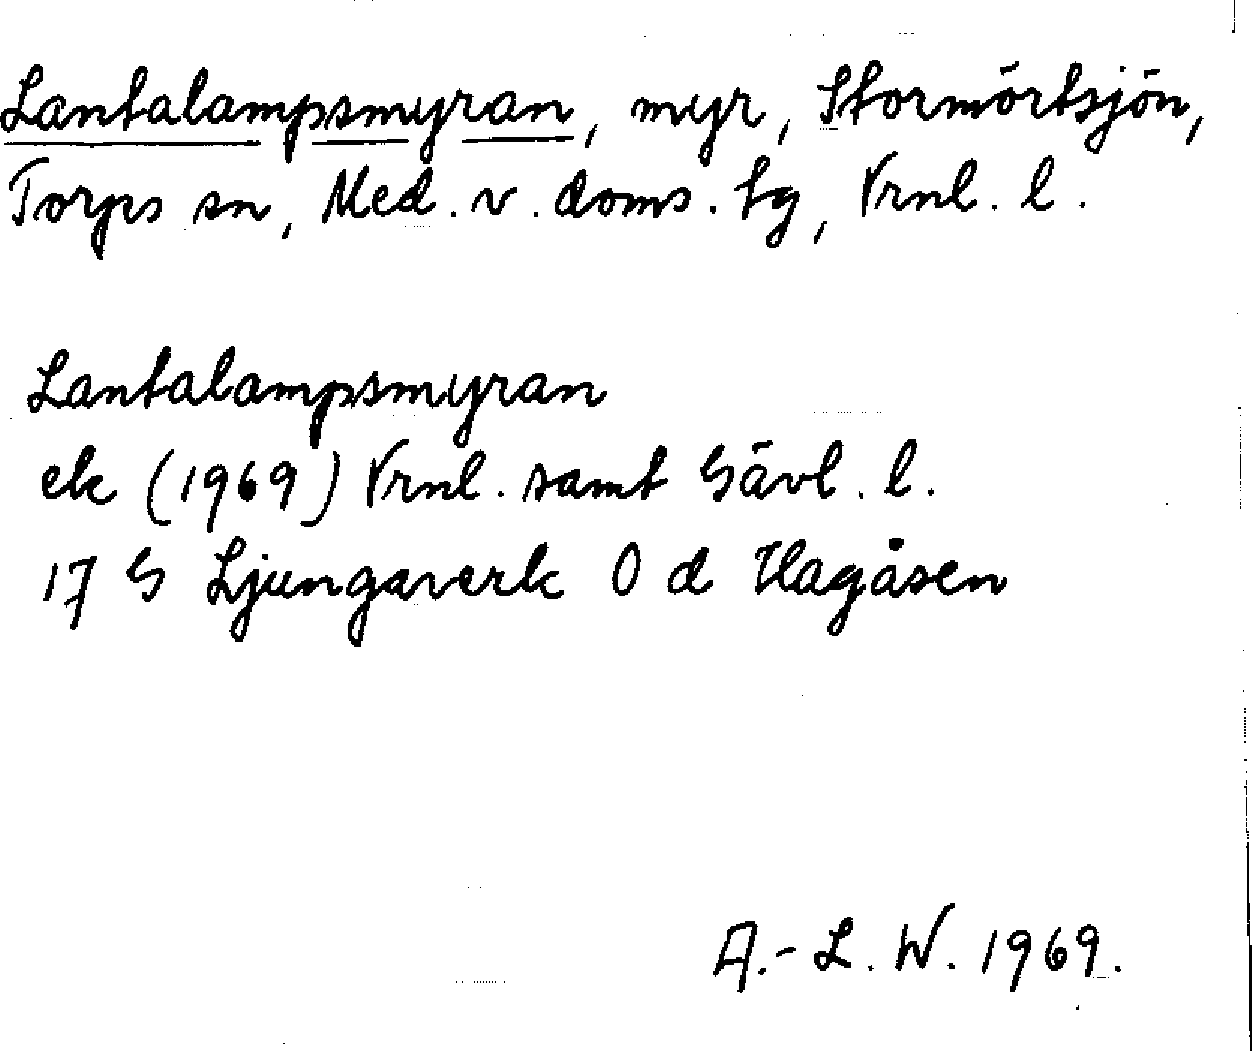 Lantalampsmyran, myr, Stormörtsjön,
Torps sn, Med. v. doms. tg, Vrnl. l.
Lantalampsmyran
ek (1969) Vrnl. samt Gävl. l.
17 G Ljungaverk O d Hagåsen
A.-L. W. 1969.